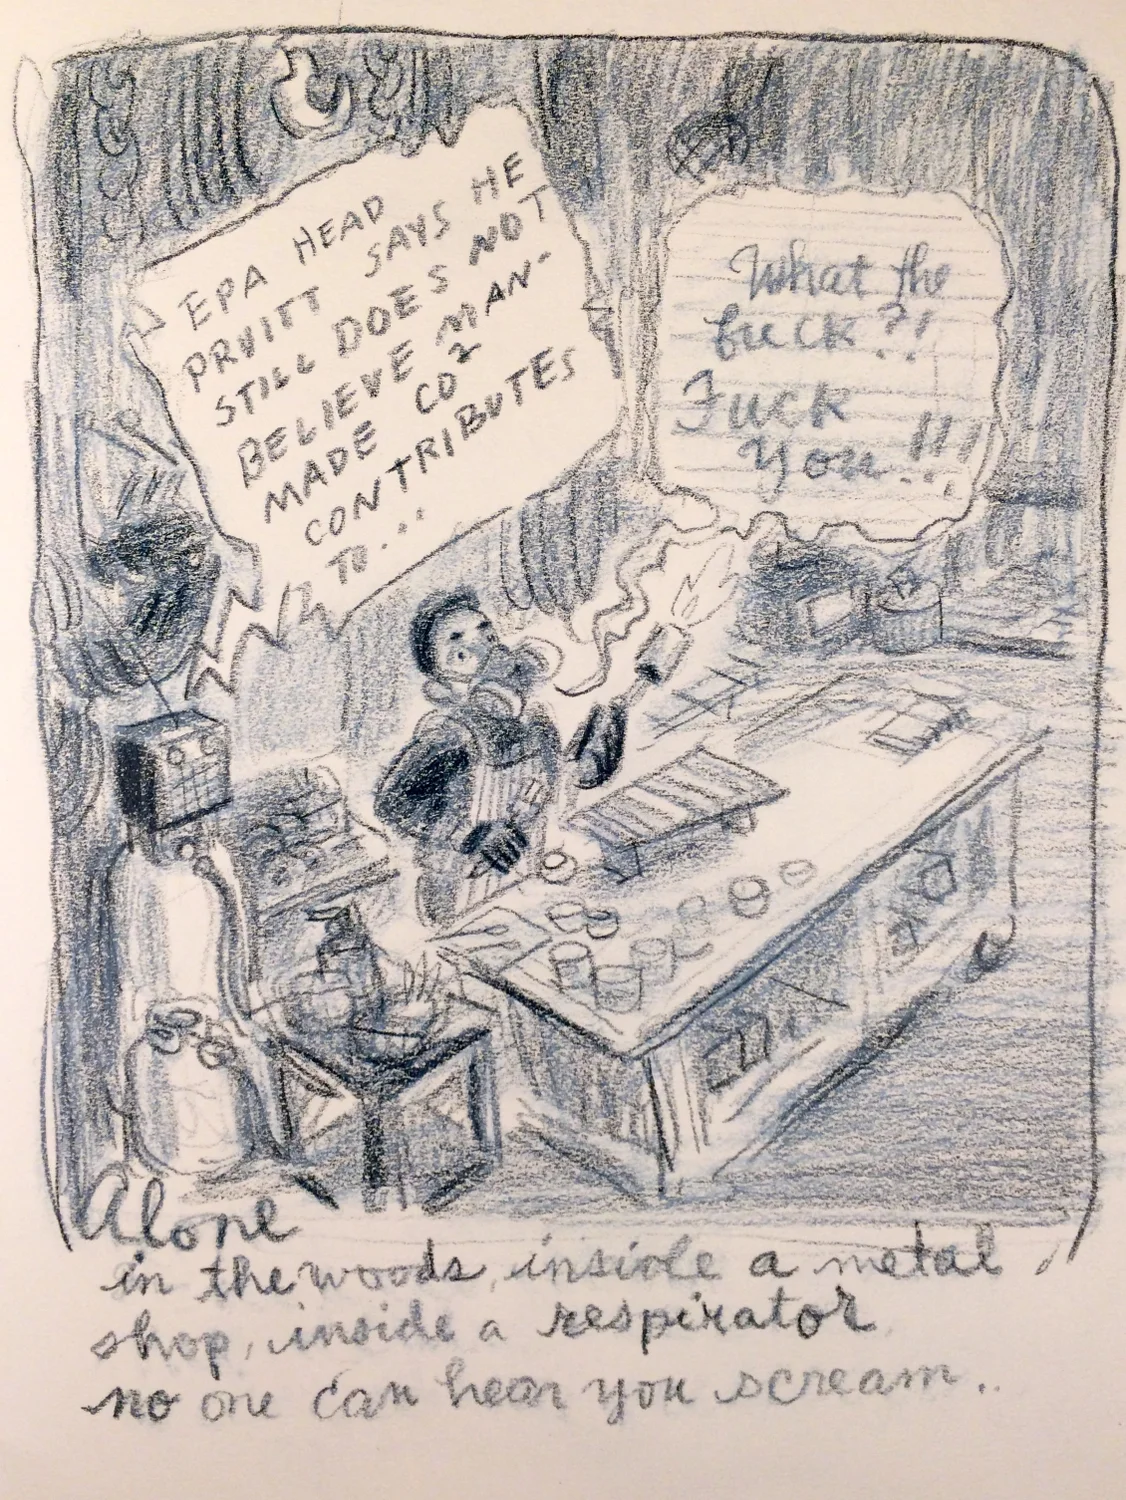 EPA HEAD
PRUITT SAYS HE
STILL DOES NOT
BELIEVE MAN-
MADE CO2
CONTRIBUTES
TO...
What the
fuck?!
Fuck
you..!!!
Alone
in the woods, inside a metal
shop, inside a respirator
no one can hear you scream..